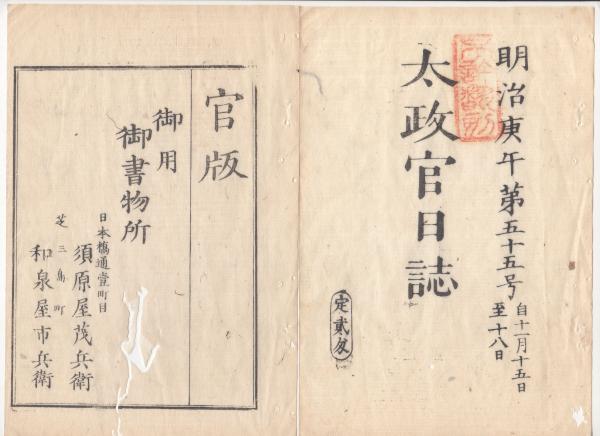 明治庚午第五十五号
自十一月十五日
至十八日
太政官日誌
官版
御用
御書物所
日本橋通壹町目
須原屋茂兵衛
芝三島町
和泉屋市兵衛